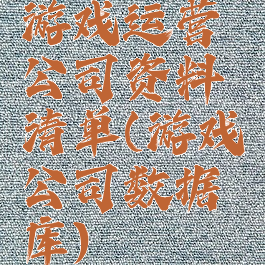 游戏运营
公司资料
清单(游戏
公司数据
库)